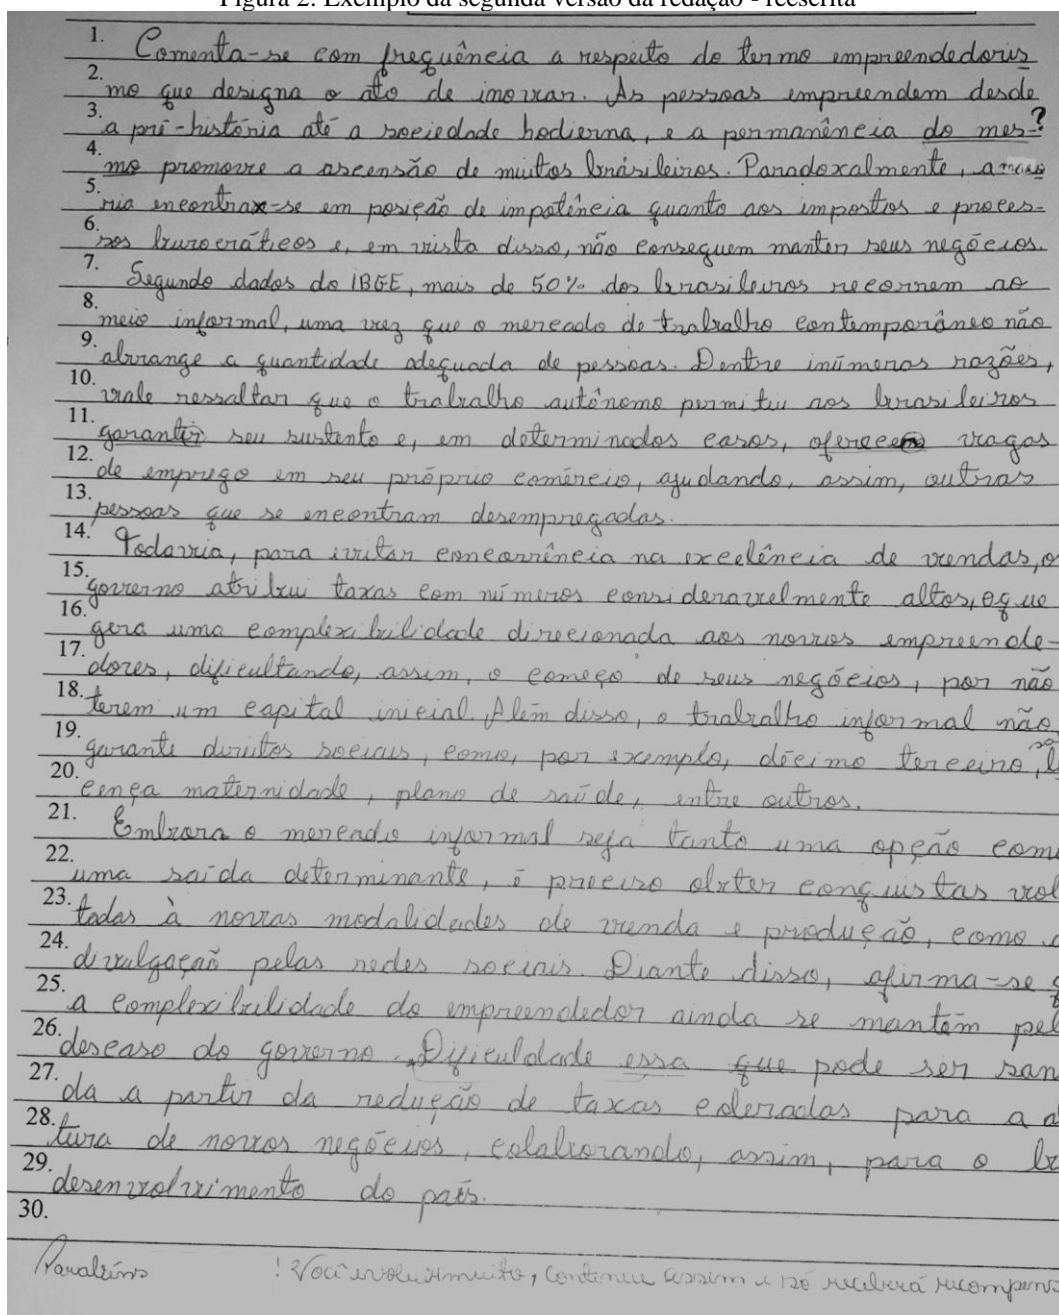 Figura 2: Exemplo da segunda versão da redação - reescrita
1. Comenta-se com frequência a respeito do termo empreendedoris
2. mo que designa o ato de inovar. As pessoas empreendem desde
3. a pré-história até a sociedade hodierna, e a permanência do mes-?
4. mo promove a ascensão de muitos brasileiros. Paradoxalmente, a maio
5. ria encontra-se em posição de impotência quanto aos impostos e proces-
6. sos burocráticos e, em vista disso, não conseguem manter seus negócios.
7. Segundo dados do IBGE, mais de 50% dos brasileiros recorrem ao
8. meio informal, uma vez que o mercado de trabalho contemporâneo não
9. abrange a quantidade adequada de pessoas. Dentre inúmeras razões,
10. vale ressaltar que o trabalho autônomo permitiu aos brasileiros
11. garantir seu sustento e, em determinados casos, oferecem vagas
12. de emprego em seu próprio comércio, ajudando, assim, outras
13. pessoas que se encontram desempregadas.
14. Todavia, para evitar concorrência na excelência de vendas, o
15. governo atribui taxas com números consideravelmente altos, o que
16. gera uma complexibilidade direcionada aos novos empreende-
17. dores, dificultando, assim, o começo de seus negócios, por não
18. terem um capital inicial. Além disso, o trabalho informal não
19. garante direitos sociais, como, por exemplo, décimo terceiro, li
20. cença maternidade, plano de saúde, entre outros.
21. Embora o mercado informal seja tanto uma opção com
22. uma saída determinante, é preciso obter conquistas vol
23. tadas à novas modalidades de venda e produção, como a
24. divulgação pelas redes sociais. Diante disso, afirma-se q
25. a complexibilidade do empreendedor ainda se mantém pel
26. descaso do governo. Dificuldade essa que pode ser san
27. da a partir da redução de taxas cobradas para a a
28. tura de novos negócios, colaborando, assim, para o
29. desenvolvimento do país.
30.
Parabéns ! Você evoluiu muito, continue assim e só receberá recompens